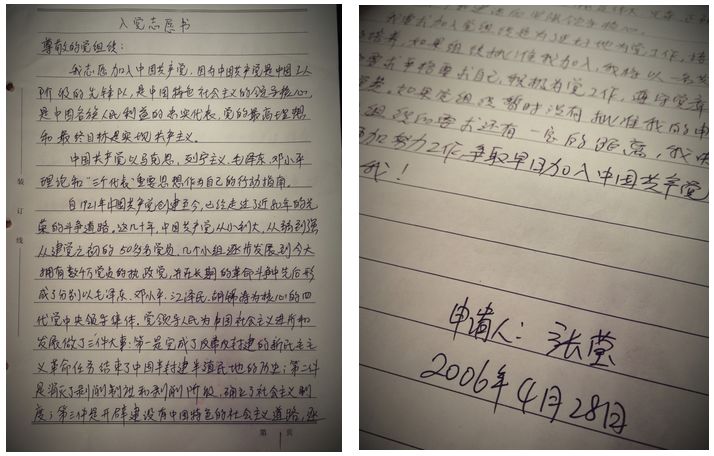 入党志愿书
尊敬的党组织:
我志愿加入中国共产党,因为中国共产党是中国工人
阶级的先锋队,是中国特色社会主义的领导核心,
是中国各族人民利益的忠实代表,党的最高理想
和最终目标是实现共产主义。
中国共产党以马克思、列宁主义、毛泽东、邓小平
理论和"三个代表"重要思想作为自己的行动指南。
自1921年中国共产党创建至今,已经走过了近和年的光
荣的斗争道路。这几十年,中国共产党从小到大,从弱到强
从建党之初的50多名党员,几个小组逐步发展到今天
拥有数千万党员的执政党,并在长期的革命斗争中先后形
成了分别以毛泽东、邓小平、江泽民、胡锦涛为核心的四
代党中央领导集体。党领导人民为中国社会主义进步和
发展做了三件大事:第一是完成了反帝反封建的新民主主
义革命任务结束了中国半封建半殖民地的历史;第二件
是消灭了剥削制社和剥削阶级,确立了社会主义制
度;第三件是开辟建设有中国特色的社会主义道路,逐
第 1 页
装
订
线
我要求加入党组织是为了更好地为党工作,
培养,如果组织批准我加入,我将以一名共
要求严格要求自己,积极为党工作,遵守党章
如果党组织暂时没有批准我的申
组织的要求还有一定的距离,我
加努力工作,争取早日加入中国共产党
我!
申请人:张莹
2006年4月28日